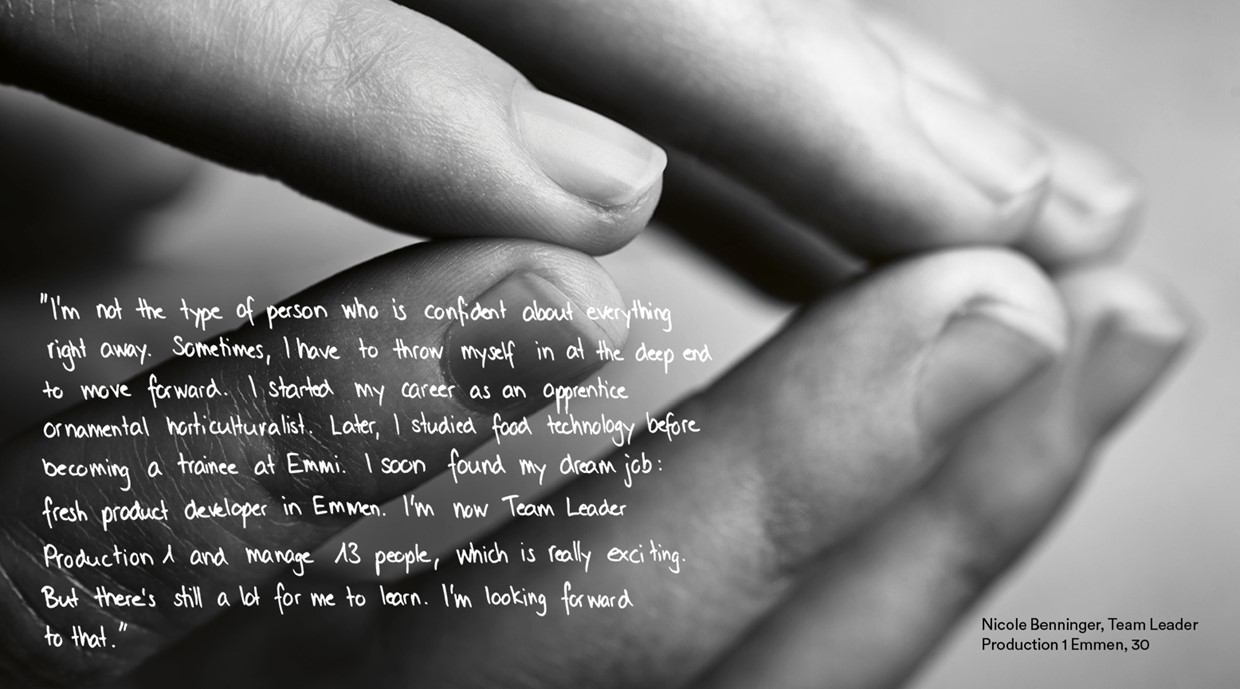 "I'm not the type of person who is confident about everything
right away. Sometimes, I have to throw myself in at the deep end
to move forward. I started my career as an apprentice
ornamental horticulturalist. Later, I studied food technology before
becoming a trainee at Emmi. I soon found my dream job:
fresh product developer in Emmen. I'm now Team Leader
Production 1 and manage 13 people, which is really exciting.
But there's still a lot for me to learn. I'm looking forward
to that."
Nicole Benninger, Team Leader
Production 1 Emmen, 30